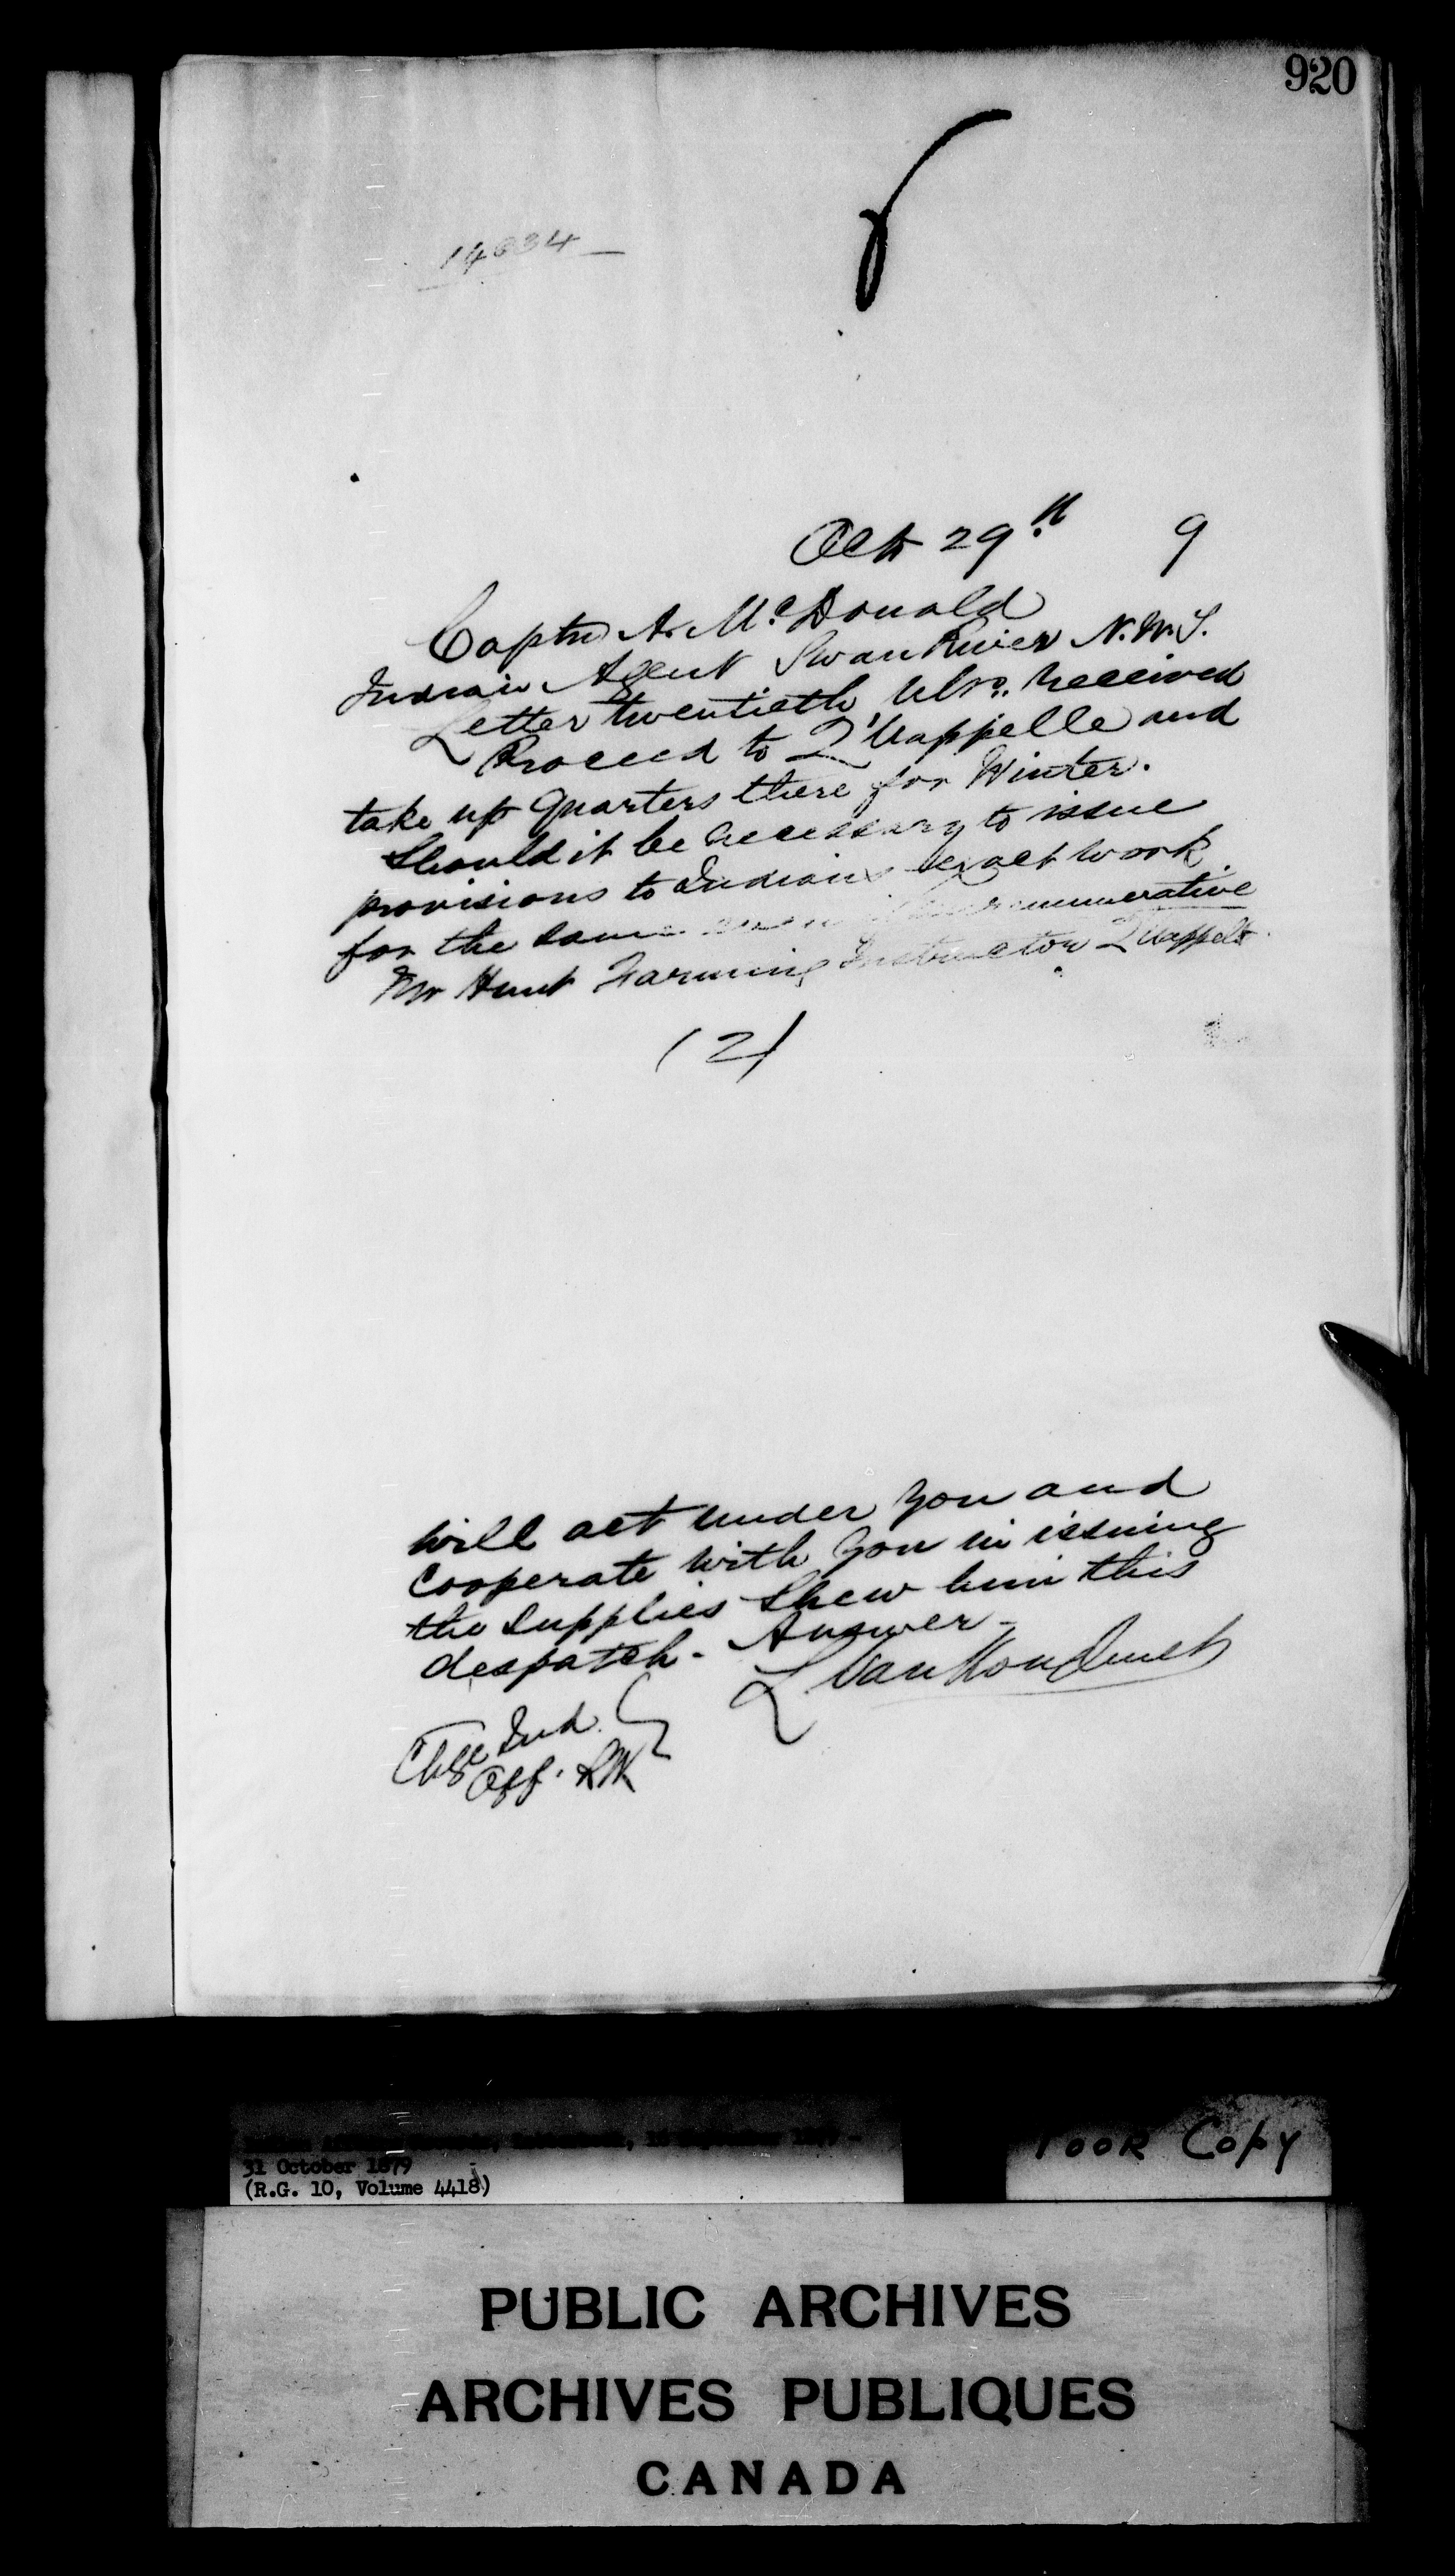 920
14634
Octr 29th 9
Captn A. McDonald
Indian Agent Swan River N.W.T.
Letter twentieth Ulto. received
Proceed to Q'Uappelle and
take up quarters there for Winter.
Should it be necessary to issue
provisions to Indians exact work
for the same remunerative
Mr Hunt Farming Instructor Q'Uappelle
(2)
will act under you and
cooperate with you in issuing
the supplies Shew him this
despatch. Answer.
L VanKoughnet
Chge Ind.
Off.
31 October 1879
(R.G. 10, Volume 4418)
Poor Copy
PUBLIC ARCHIVES
ARCHIVES PUBLIQUES
CANADA